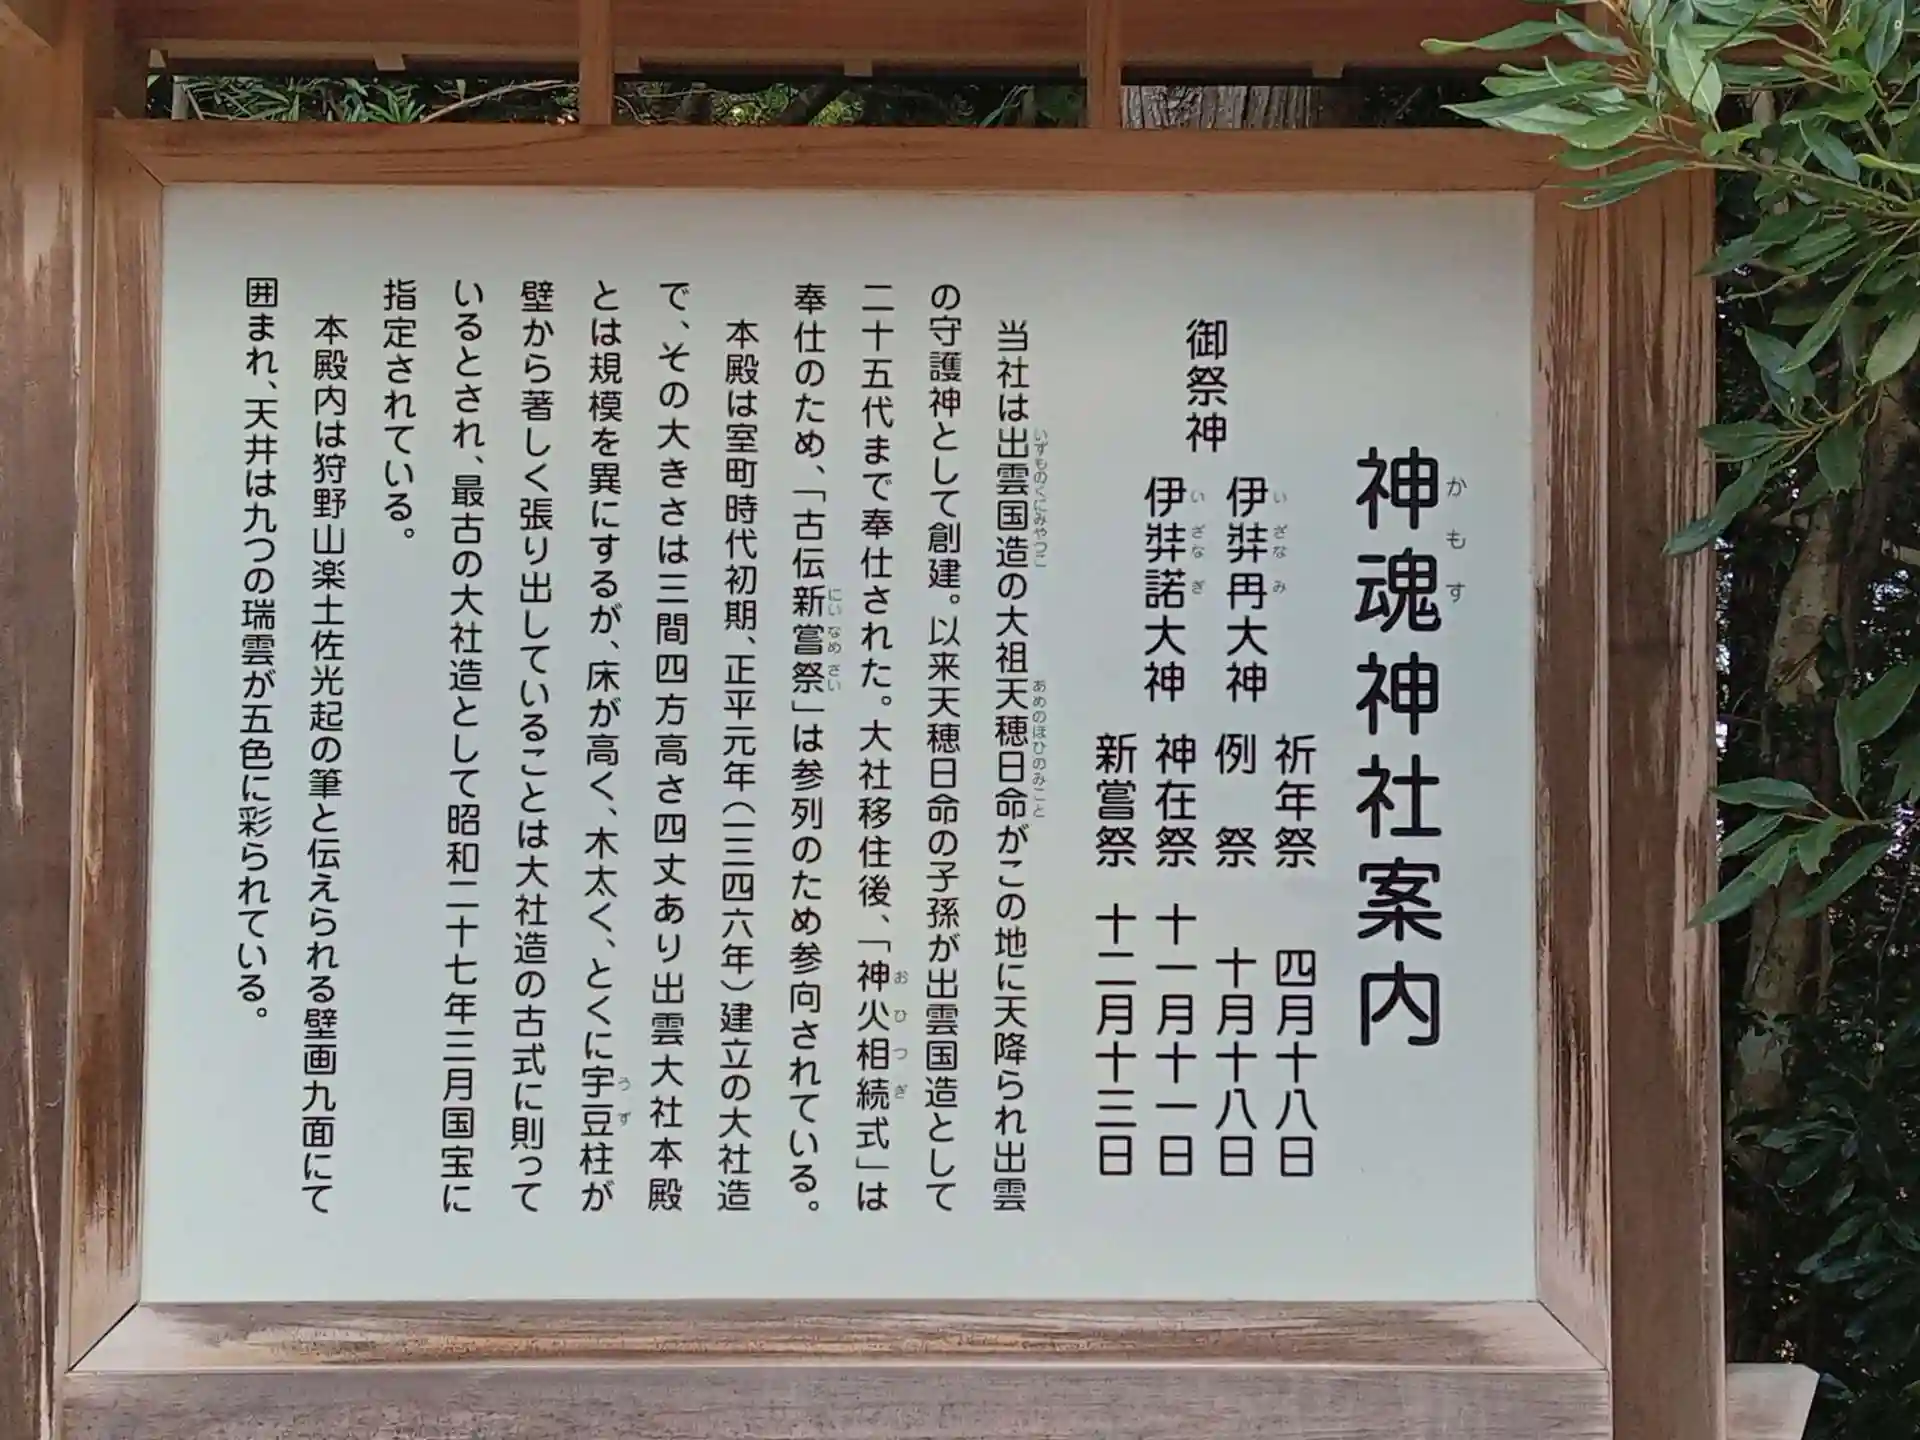 神魂神社案内
かもす
御祭神
伊弉冉大神
いざなみ
伊弉諾大神
いざなぎ
祈年祭 四月十八日
例 祭 十月十八日
神在祭 十一月十一日
新嘗祭 十二月十三日
当社は出雲国造の大祖天穂日命がこの地に天降られ出雲
いずものくにみやつこ
あめのほひのみこと
の守護神として創建。以来天穂日命の子孫が出雲国造として
二十五代まで奉仕された。大社移住後、「神火相続式」は
おひつぎ
奉仕のため、「古伝新嘗祭」は参列のため参向されている。
にいなめさい
本殿は室町時代初期、正平元年(一三四六年)建立の大社造
で、その大きさは三間四方高さ四丈あり出雲大社本殿
とは規模を異にするが、床が高く、木太く、とくに宇豆柱が
うず
壁から著しく張り出していることは大社造の古式に則って
いるとされ、最古の大社造として昭和二十七年三月国宝に
指定されている。
本殿内は狩野山楽土佐光起の筆と伝えられる壁画九面にて
囲まれ、天井は九つの瑞雲が五色に彩られている。